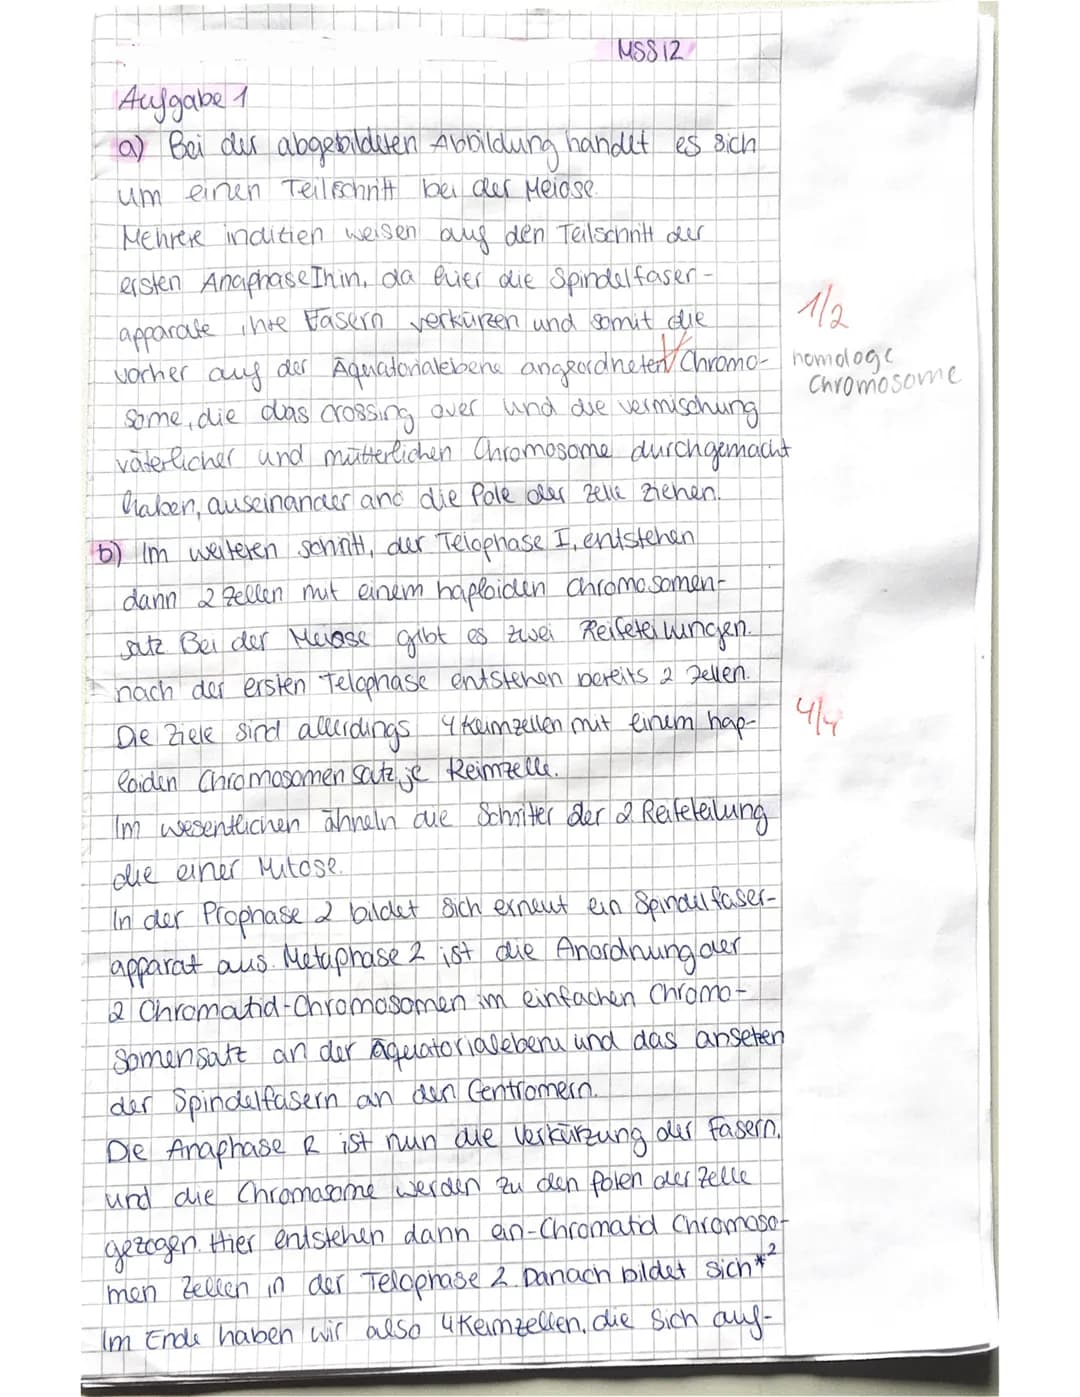 MSS12
Aufgabe 1
a) Bei der abgebildeten Abbildung handelt es sich
um einen Teilschritt bei der Meiose
Mehrere indizien weisen auf den Teilschritt der
ersten Anaphase I hin, da hier die Spindelfaser-
apparate ihre Fasern verkürzen und somit die
1/2
vorher auf der Äquatorialebene angeordneten Chromo-
homologe
Chromosome
some, die das crossing over und die vermischung
väterlicher und mütterlichen Chromosome durchgemacht
haben, auseinander and die Pole der Zelle ziehen.
b) Im weiteren schritt, der Telophase I, entstehen
dann 2 Zellen mit einem haploiden Chromosomen-
satz Bei der Meiose gibt es zwei Reifeteilungen.
nach der ersten Telophase entstehen bereits 2 Zellen.
Die Ziele sind allerdings 4 Keimzellen mit einem hap-
4/4
loiden Chromosomensatz je Keimzelle.
Im wesentlichen ähneln die Schritte der 2 Reifeteilung
die einer Mitose.
In der Prophase 2 bildet sich erneut ein Spindelfaser-
apparat aus. Metaphase 2 ist die Anordnung der
2 Chromatid-Chromosomen im einfachen Chromo-
somensatz an der Äquatorialebene und das ansetzen
der Spindelfasern an den Centromern.
Die Anaphase 2 ist nun die Verkürzung der Fasern,
und die Chromosome werden zu den Polen der Zelle
gezogen. Hier entstehen dann ein-Chromatid Chromoso-
men Zellen in der Telophase 2. Danach bildet sich *²
Im Ende haben wir also 4 Keimzellen, die sich auf-